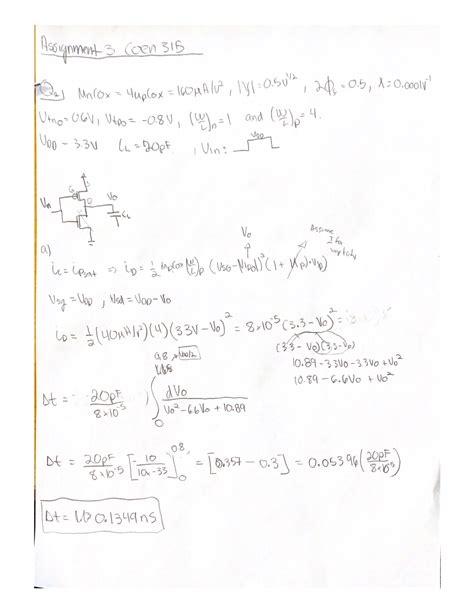 Assignment 3 Coen 315
Q2) MnCox = 4μpCox = 160μA/V², |γ| = 0.5V^1/2, 2Φ = 0.5, λ = 0.0001V⁻¹
Vtno = 0.6V, Vtpo = -0.8V, (W/L)n = 1 and (W/L)p = 4.
VDD - 3.3V CL = 20pF, Vin: VDD
Vin Vo CL
a)
Vo
Assume
ic = ipsat ⇒ iD = 1/2 μpCox(W/L)p (VSG - |Vtpo|)² (1 +
Vsg = VDD, Vsd = VDD - Vo
iD = 1/2 (40μA/V²)(4)(3.3V - Vo)² = 8×10⁻⁵ (3.3 - Vo)²
(3.3 - Vo)(3.3 - Vo)
10.89 - 3.3Vo - 3.3Vo + Vo²
10.89 - 6.6Vo + Vo²
0.8 VDD/2
Δt = 20pF / 8×10⁻⁵ ∫0 dVo / Vo² - 6.6Vo + 10.89
Δt = 20pF / 8×10⁻⁵ [- 10 / 10x-33]0^0.8 = [0.357 - 0.3] = 0.05396 (20pF / 8×10⁻⁵)
Δt = 0.1349ns